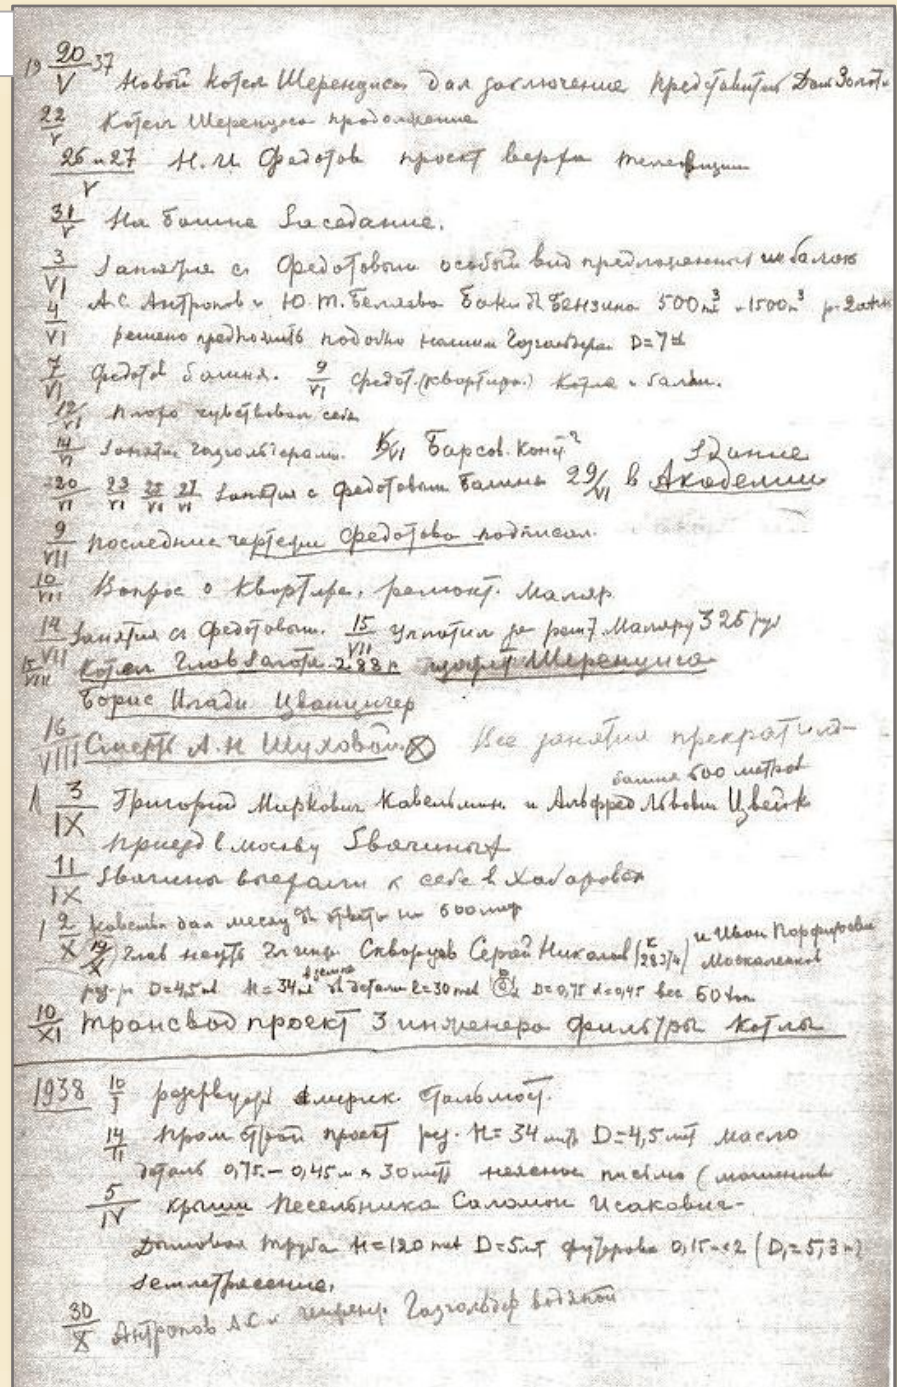 19 20/V 37 Новый котел Шеренциса дал заключение представителю
22/V Котел Шеренциса продолжение
26 и 27/V Н.И. Федотов проект верха
31/V На башне Заседание.
3/VI Занятия с Федотовым особый вид
4/VI А.С. Антропов и Ю.М. Беляева Баки д. Бензина 500 m³ и 1500 m³
решено предложить подобно нашим Газгольдерам D=7
7/VI Федотов башня. 9/VI Федот. (квартира) Котлы и башни.
12/VI плохо чувствовал себя
14/VI Занятия газгольдерами. 15/VI Барсов. Конст?
20/VI 23/VI 25/VI 27/VI Занятия с Федотовым Башни 29/VI в Академии
Здание
9/VII последние чертежи Федотова подписал.
10/VII Вопрос о квартире, ремонт. маляр
14/VII Занятия с Федотовым. 15/VII Уплатил за ремт. Маляру 325 руб
15/VIII Котел Глав 288 Шеренциса
Борис Влади
16/VIII Смерть А.Н. Шуховой. Все занятия прекратил
башня 500 метров
3/IX Григорий Миркович Кавельман и Альфред Львович Цвейг
приезд в москву Звачиных
11/IX Звачины выехали к себе в Хабаровск
2/X дал месяц ответы на 500 метр
14/X Глав нефть Скворцов Сергей Николаев и Иван Порфирович
Москаленков
рез-р D=4,5 mt H=34 детали l=30 mt D=0,75 d=0,45 вес 60 тон
10/XI Трансвод проект 3 инженера фильтры котлы
1938 10/I резервуары америк. Стальмост.
14/II Промстрой проект рез. H=34 D=4,5 mt масло
деталь 0,75 – 0,45 30 неясное письмо
5/IV крыши Песельника Саломон Исакович
Дымовая труба H=120 mt D=5 mt футеровка
Землетрясение.
30/X Антропов А.С. и Газгольдер водяной